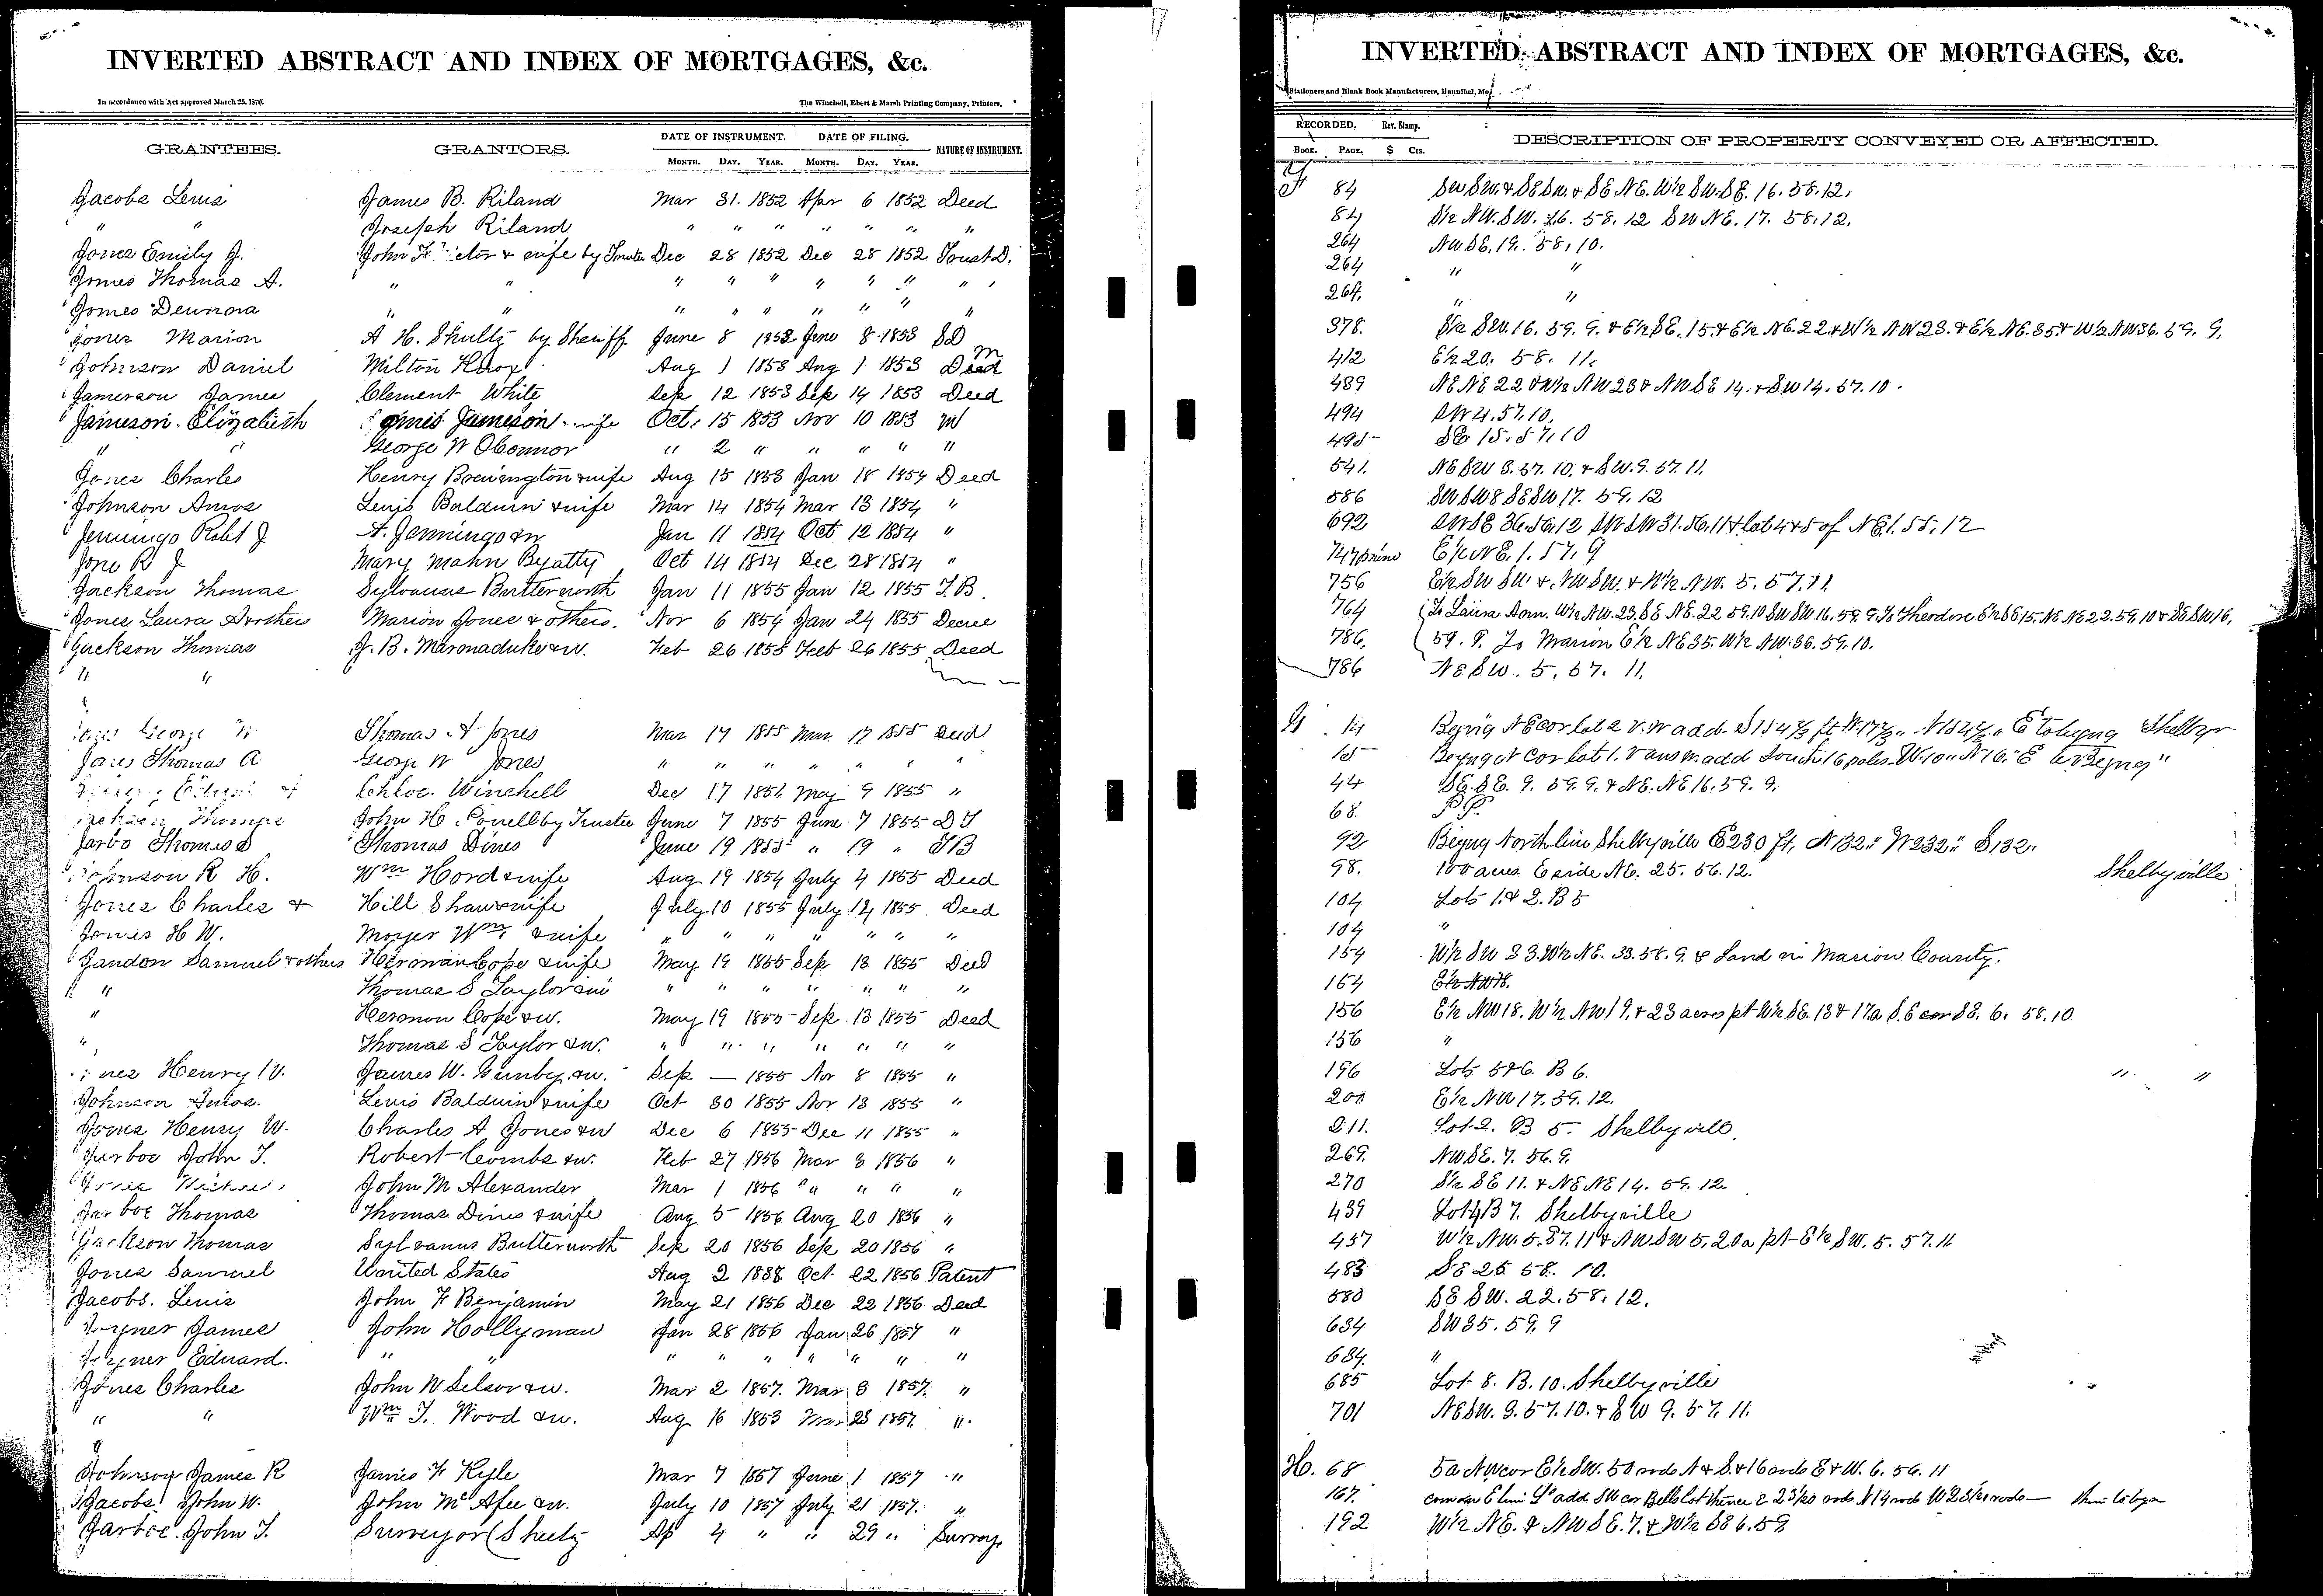 INVERTED ABSTRACT AND INDEX OF MORTGAGES, &c.
In accordance with Act approved March 25, 1870.
The Winchell, Ebert & Marsh Printing Company, Printers,
GRANTEES. GRANTORS. DATE OF INSTRUMENT. DATE OF FILING. NATURE OF INSTRUMENT.
MONTH. DAY. YEAR. MONTH. DAY. YEAR.
Jacobs Lewis James B. Riland Mar 31. 1852 Apr 6 1852 Deed
" " Joseph Riland " " " " " " "
Jones Emily J. John & wife by Trustee Dec 28 1852 Dec 28 1852 Trust D.
Jones Thomas A. " " " " " " " " " "
Jones " " " " " " " " "
Jones Marion A. H. Shultz by Sheriff June 8 1853 June 8 1853 SD
Johnson Daniel Milton Knox Aug 1 1853 Aug 1 1853 Deed
Jamerson James Clement White Sep 12 1853 Sep 14 1853 Deed
Jameson Elizabeth Jameson wife Oct. 15 1853 Nov 10 1853 M
" " George W OConnor " 2 " " " " "
Jones Charles Henry Brewington & wife Aug 15 1853 Jan 18 1854 Deed
Johnson Amos Lewis Balduin & wife Mar 14 1854 Mar 13 1854 "
Jennings Robt J A. Jennings & w Jan 11 1854 Oct. 12 1854 "
Jone R J Mary Mahn By atty Oct 14 1854 Dec 28 1854 "
Jackson Thomas Sylvanus Butterworth Jan 11 1855 Jan 12 1855 T.B.
Jones Laura & others Marion Jones & others. Nov 6 1854 Jan 24 1855 Decree
Jackson Thomas J. B. Marmaduke & w. Feb 26 1855 Feb 26 1855 Deed
" "
George W Thomas A Jones Mar 17 1855 Mar 17 1855 Deed
Jones Thomas A George W Jones " " " " " " "
Chloe Winchell Dec 17 1851 May 9 1855 "
Jackson Thomas John H. Powell by Trustee June 7 1855 June 7 1855 D T
Jarbo Thomas Thomas Dines June 19 1855 " 19 " TB
Johnson R H. Wm Hord & wife Aug 19 1854 July 4 1855 Deed
Jones Charles & Hill Shaw & wife July 10 1855 July 12 1855 Deed
Jones H W. Moyer Wm & wife " " " " " " "
Jandon Samuel & others Herman Cope & wife May 19 1855 Sep 13 1855 Deed
" " Thomas S Taylor & w " " " " " " "
" Herman Cope & w. May 19 1855 Sep. 13 1855 Deed
" Thomas S Taylor & w. " " " " " " "
Henry W. James W. Gunby & w. Sep — 1855 Nor 8 1855 "
Johnson Amos. Lewis Balduin & wife Oct 30 1855 Nor 13 1855 "
Jones Henry W. Charles A Jones & w Dec 6 1855 Dec 11 1855 "
Jarboe John T. Robert Combs & w. Feb 27 1856 Mar 3 1856 "
John M Alexander Mar 1 1856 " " " "
Jarboe Thomas Thomas Dines & wife Aug 5 1856 Aug 20 1856 "
Jackson Thomas Sylvanus Butterworth Sep 20 1856 Sep 20 1856 "
Jones Samuel United States Aug 2 1838 Oct. 22 1856 Patent
Jacobs. Lewis John F Benjamin May 21 1856 Dec 22 1856 Deed
James John Hollyman Jan 28 1856 Jan 26 1857 "
Eduard. " " " " " " " " "
Jones Charles John W Selsor & w. Mar 2 1857. Mar 3 1857. "
" " Wm T. Wood & w. Aug 16 1853 Mar 23 1857 "
Johnson James R James F Kyle Mar 7 1857 June 1 1857 "
Jacobs John W. John McAfee & w. July 10 1857 July 21 1857. "
Jarboe John T. Surveyor (Sheetz Ap 4 " " 29 " Survey
INVERTED ABSTRACT AND INDEX OF MORTGAGES, &c.
Stationers and Blank Book Manufacturers, Hannibal, Mo.
RECORDED. Rev. Stamp. DESCRIPTION OF PROPERTY CONVEYED OR AFFECTED.
BOOK. PAGE. $ Cts.
F 84 SW SW. & SE SW. & SE NE. W½ SW. SE. 16. 58. 12.
84 S½ NW. SW. 16. 58. 12 SW NE. 17. 58. 12.
264 NW SE. 19. 58. 10.
264 " "
264. " "
378. S½ SW. 16. 59. 9. & E½ SE. 15. & E½ NE. 22. & W½ NW 23. & E½ NE. 35 & W½ NW 36. 59. 9.
412 E½ 20. 58. 11.
489 NE NE 22 & W½ NW 23 & NW SE 14. & SW 14. 57. 10.
494 SW 4. 57. 10.
495 SE 15. 57. 10
541. NE SW 3. 57. 10. & SW. 9. 57. 11.
586 SW SW 8 SE SW 17. 59. 12
692 SW SE 36. 56. 12 SW SW 31. 56. 11 & lot 4 & 5 of NE 1. 55. 12
747 E½ NE. 1. 57. 9
756 E½ SW SW & NW SW. & W½ NW. 5. 57. 11
764 To Laura Ann. W½ NW. 23. SE NE. 22 59. 10 SW SW 16. 59. 9. To Theodore E½ SE 15. NE NE 22. 59. 10 & SE SW 16.
786. 59. 9. To Marion E½ NE 35. W½ NW. 36. 59. 10.
786 NE SW. 5. 57. 11.
G 14 Beg'g NE cor lot 2 V. W add. E to begng Shelby
15 Begng N cor lot 1. add South 16 poles W. 10 " N 16 " E to Begng "
44 SE. SE. 9. 59. 9. & NE. NE 16. 59. 9.
68. P P.
92 Begng North line Shelbyville E 230 ft, N 132 " W 232 " S 132.
98. 100 acres E side NE. 25. 56. 12. Shelbyville
104 Lots 1. & 2. B 5
104 "
154 W½ SW 33. W½ NE. 33. 58. 9. & Land in Marion County.
154 E½ NW 18.
156 E½ NW 18. W½ NW 19. & 23 acres pt W½ SE. 18 & 17a S. E cor SE. 6. 58. 10
156 "
196 Lots 5 & 6. B 6. " "
200 E½ NW 17. 59. 12.
211. Lot 2. B 5. Shelbyvill.
269. NW SE. 7. 56. 9.
270 S½ SE 11. & NE NE 14. 59. 12.
439 Lot 4 B 7. Shelbyville
457 W½ NW. 5. 57. 11 & NW SW 5. 20a pt E½ SW. 5. 57. 11
483 SE 25 58. 10.
580 SE SW. 22. 58. 12.
634 SW 35. 59. 9
634. "
685 Lot 8. B. 10. Shelbyville
701 NE SW. 3. 57. 10. & SW 9. 57. 11.
H. 68 5a NW cor E½ SW. 50 rods N & S. & 16 rods E & W. 6. 56. 11
167. add SW cor Bells lot thence E 23 1/20 rods N 14 rods W 23 1/20 rods —
192 W½ NE. & NW SE. 7. & W½ SE 6. 59